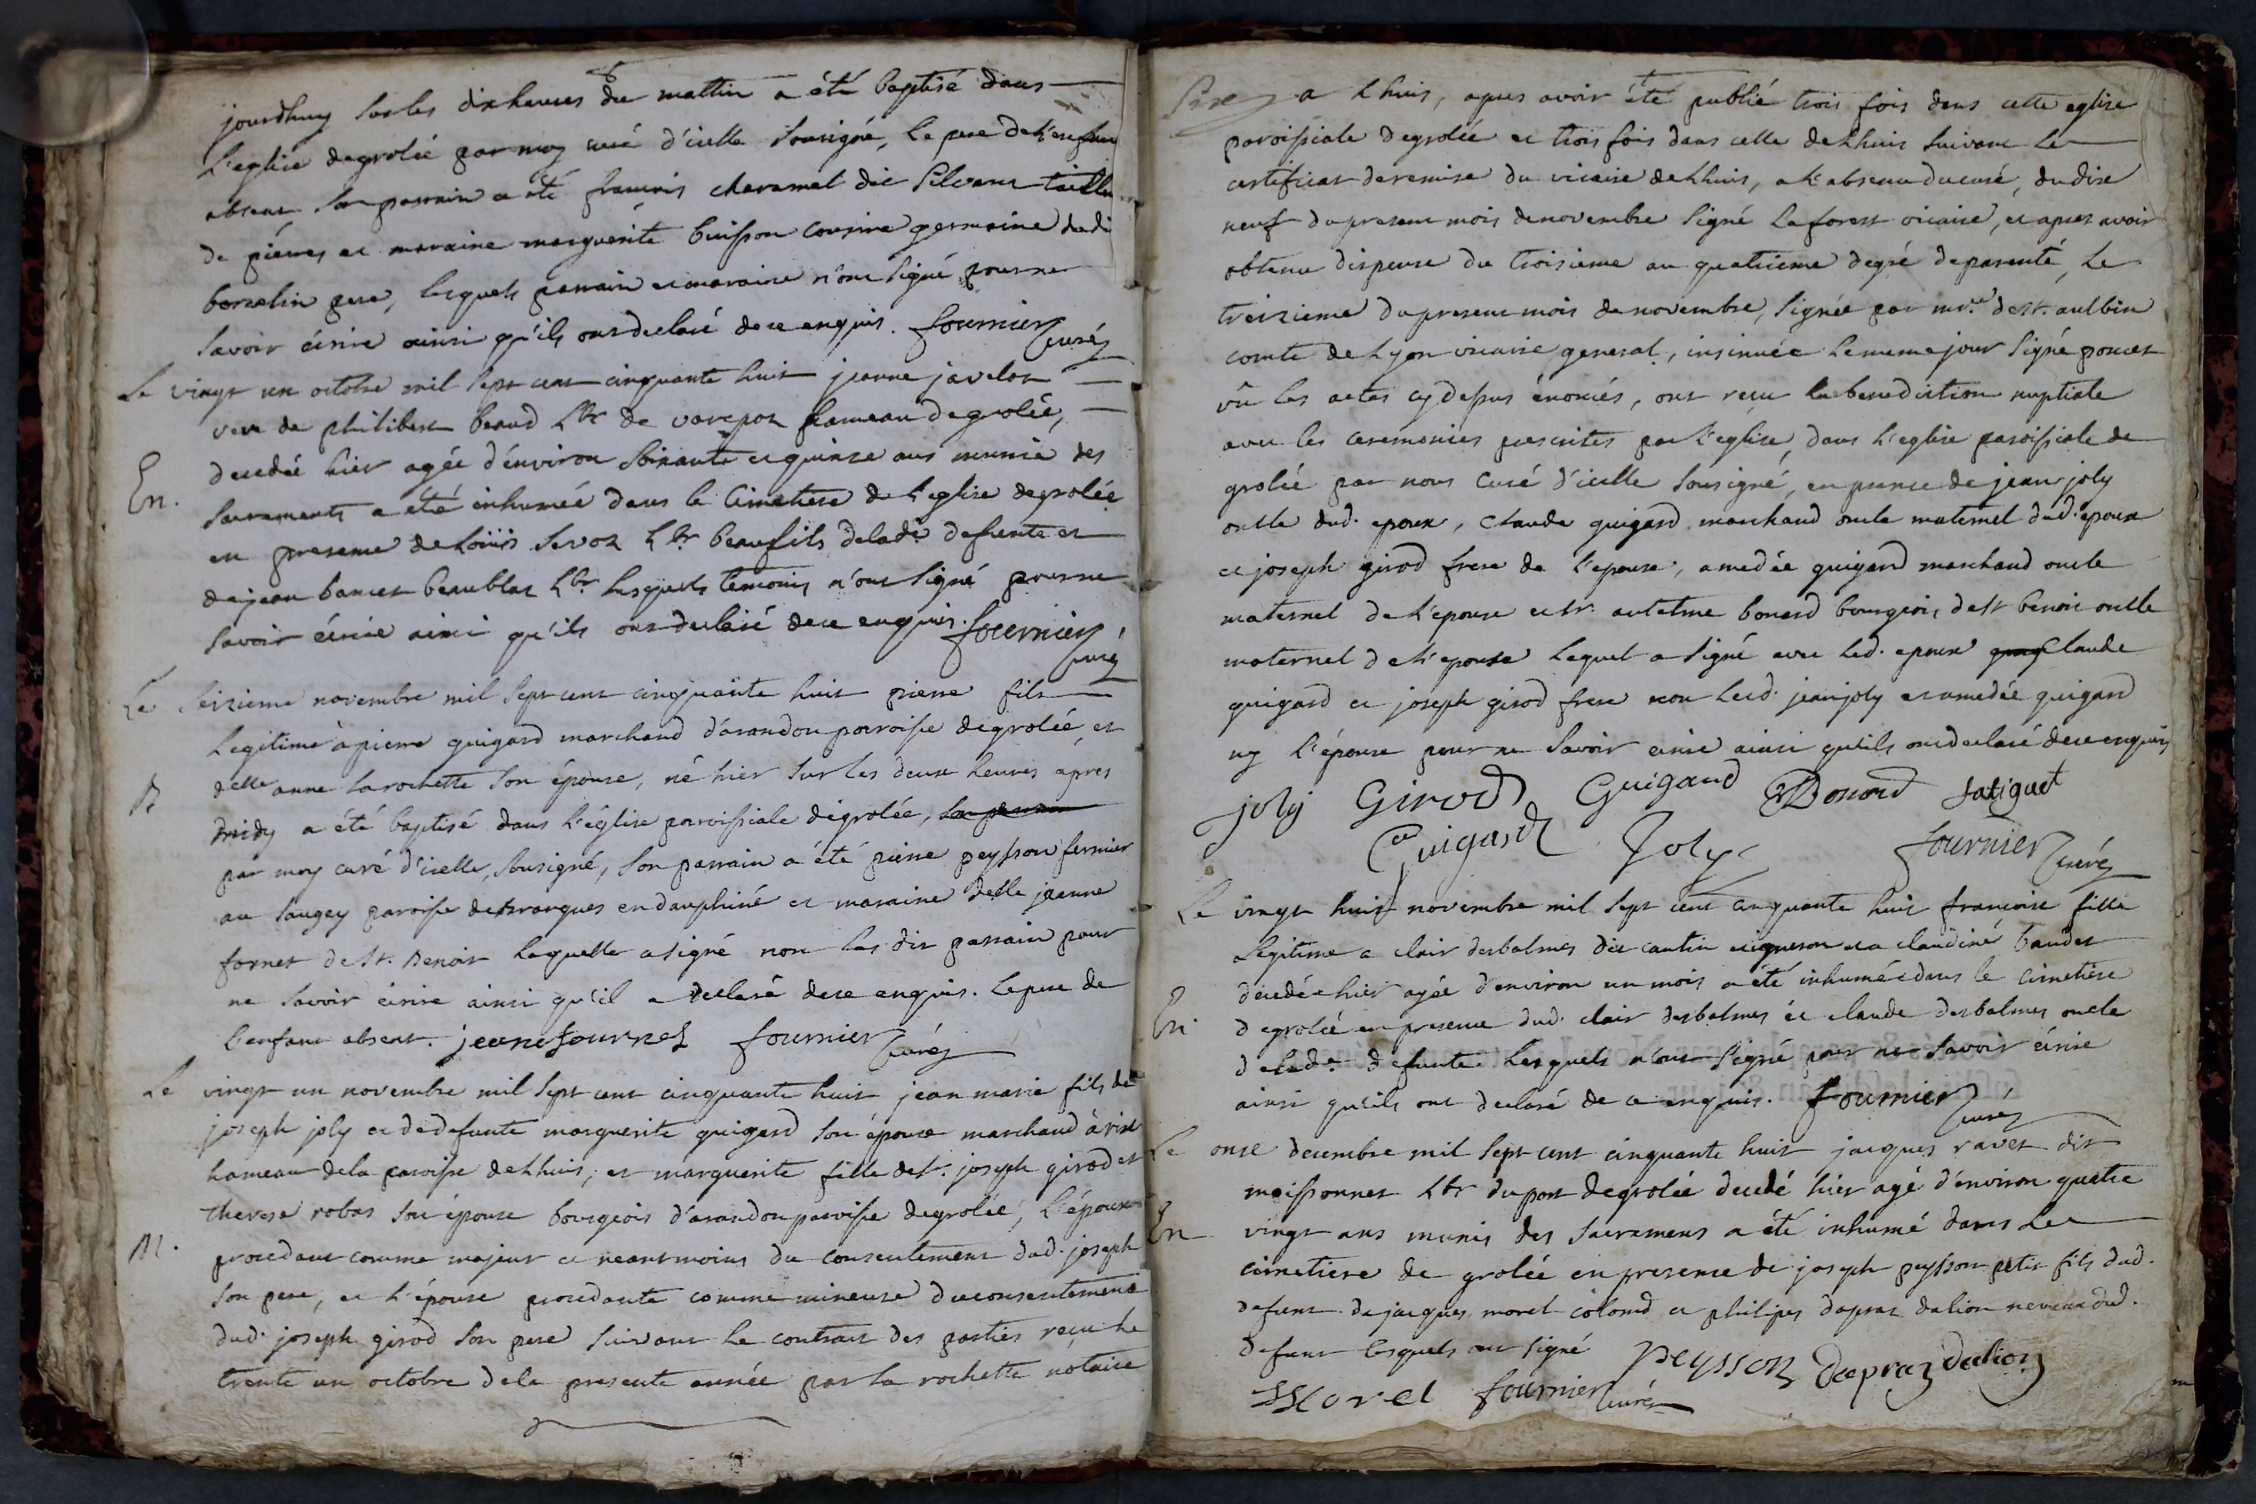 jourdhuy sur les dix heures du mattin a été baptisé dans
l'eglise de grolée par moy curé d'icelle sousigné, le pere de l'enfant
absent son parrain a été françois charamel dit Silvans tailleur
de pierres et maraine marguerite buisson cousine germaine dudi
borselin pere, lesquels parrain et maraine n'ont signé pour ne
savoir écrire ainsi qu'ils ont declaré de ce enquis. fournier curé
Le vingt un octobre mil sept cent cinquante huit jeanne javelot
veve de philibert beaud Lbr de varepoz hameau de grolée,
decedée hier agée d'environ soixante et quinze ans munie des
En.
sacrements a été inhumée dans le Cimetiere de l'eglise de grolée
en presence de Loüis servoz Lbr beaufils de lade defunte et
de jean bancet beaublaz Lbr lesquels temoins n'ont signé pour ne
savoir écrire ainsi qu'ils ont declaré de ce enquis. fournier curé
Le seizieme novembre mil sept cent cinquante huit pierre fils
legitime à pierre guigard marchand d'arandon paroisse de grolée, et
delle anne larochette son épouse, né hier sur les deux heures apres
B
midy a été baptisé dans l'église paroissiale de grolée, son parrain
par moy curé d'icelle, sousigné, son parrain a été pierre peysson fermier
au saugey paroisse de brangues en dauphiné et maraine delle jeanne
fornet de St. Benoit laquelle a signé non les dit parrain pour
ne savoir écrire ainsi qu'il a declaré de ce enquis. le pere de
l'enfant absent. jeane fournet fournier curé
Le vingt un novembre mil sept cent cinquante huit jean marie fils de
joseph joly et de defunte marguerite guigard son épouse marchand à rix
hameau de la paroisse de Lhuis, et marguerite fille de Sr. joseph girod et
therese robat son épouse bourgeois d'arandon paroisse de grolée, l'époux
M.
procedant comme majeur et neantmoins du consentement dud. joseph
son pere, et l'épouse procedante comme mineure du consentement
dud. joseph girod son pere suivant le contract des parties reçu le
trente un octobre de la presente année par la rochette nótaire
a Lhuis, apres avoir été publié trois fois dans cette eglise
paroissiale de grolée et trois fois dans celle de Lhuis suivant le
certificat de remise du vicaire de Lhuis, a l'absence du curé, du dix
neuf du present mois de novembre signé Laforest vicaire, et apres avoir
obtenu dispense du troisieme au quatrieme degré de parenté, le
treizieme du present mois de novembre, signée par mr. de St. aulbin
comte de Lyon vicaire general, insinuée le meme jour signé poncet
vû les actes cy dessus énoncés, ont reçu la benediction nuptiale
avec les ceremonies prescrites par l'eglise, dans l'eglise paroissiale de
grolée par nous curé d'icelle sousigné, en presence de jean joly
oncle dud. epoux, Claude guigard marchand oncle maternel dud. epoux
et joseph girod frere de l'epouse, amedée guigard marchand oncle
maternel de l'épouse et Sr. antelme bonard bourgeois de St benoit oncle
maternel de l'epouse lequel a signé avec led. epoux Claude
guigard et joseph girod frere non lesd. jean joly et amedée guigard
ny l'épouse pour ne savoir ecrire ainsi qu'ils ont declaré de ce enquis
joly Girod Guigard Bonard Fatiguet
Guigard Joly fournier curé
Le vingt huit novembre mil sept cent cinquante huit francoise fille
legitime a clair desbalmes dit cantin vigneron et a claudine baudet
decedée hier agée d'environ un mois a été inhumée dans le cimetière
En.
de grolée en presence dud. clair desbalmes et claude desbalmes oncle
de lade. defunte lesquels n'ont signé pour ne savoir écrire
ainsi qu'ils ont declaré de ce enquis. fournier curé
Le onze decembre mil sept cent cinquante huit jacques ravet dit
moissonnet Lbr du port de grolée decedé hier agé d'environ quatre
En
vingt ans munis des sacremens a été inhumé dans le
cimetiere de grolée en presence de joseph peysson petit fils dud.
defunt de jacques morel colomd et philipes dapraz dalion neveux dud.
defunt lesquels ont signé peysson dapraz dalion
Morel fournier curé